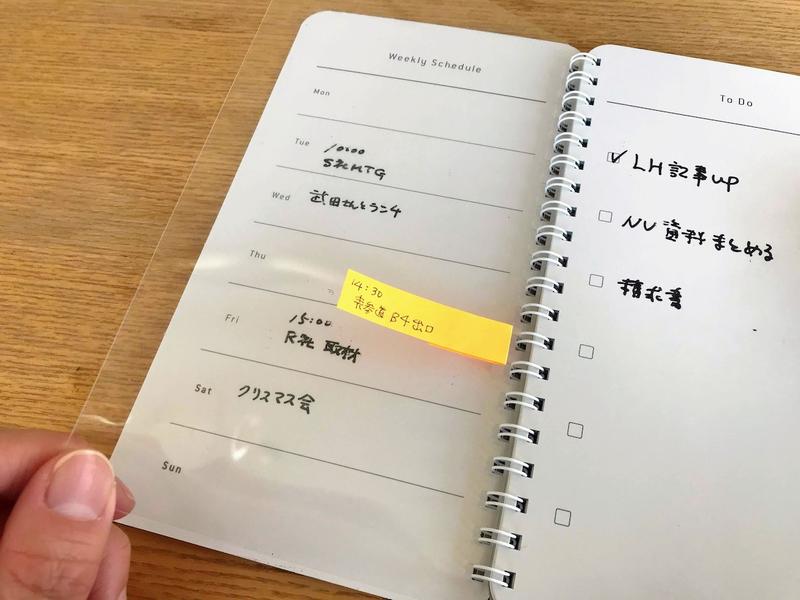 Weekly Schedule
Mon
Tue
10:00
S社MTG
Wed
武田さんとランチ
Thu
14:30
表参道 B4出口
Fri
15:00
R社 取材
Sat
クリスマス会
Sun
To Do
LH 記事up
NV 資料まとめる
請求書